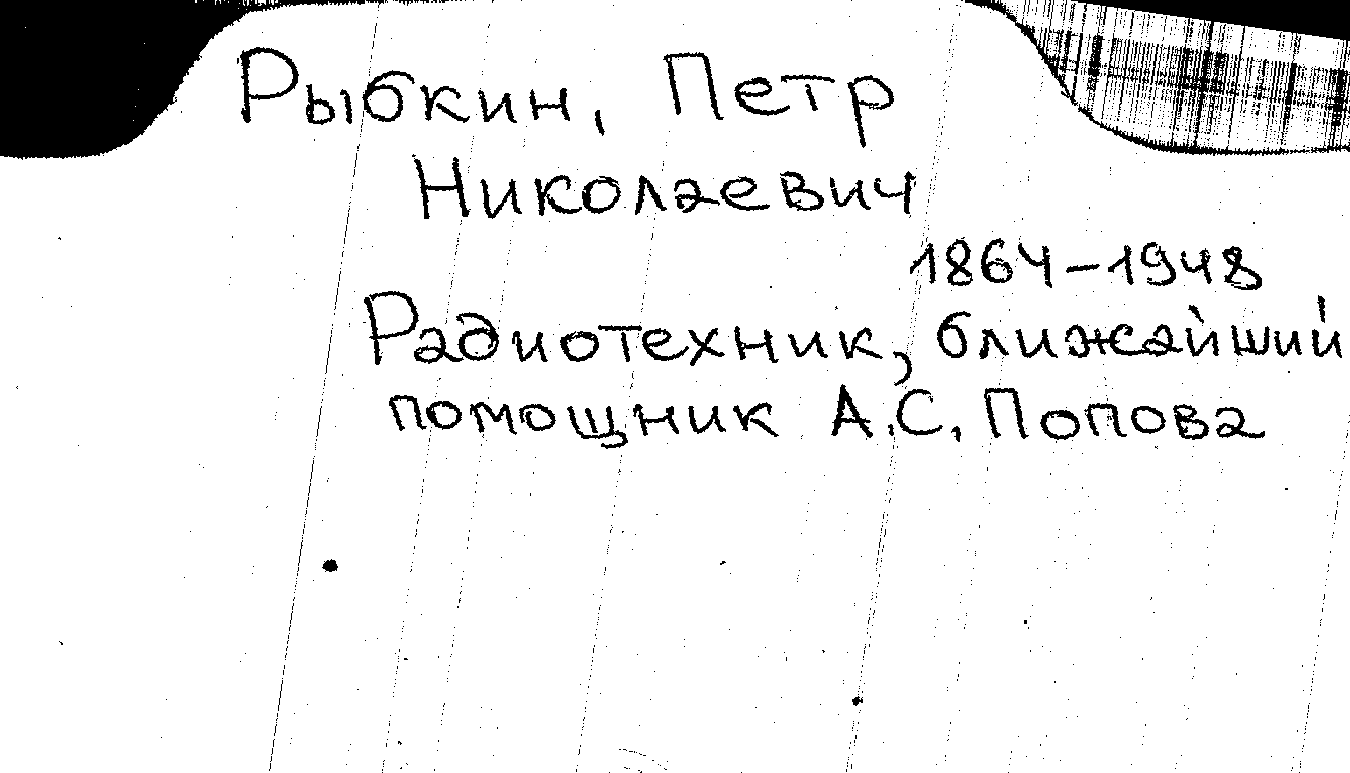 Рыбкин, Петр
Николаевич
1864-1948
Радиотехник, ближайший
помощник А.С. Попова